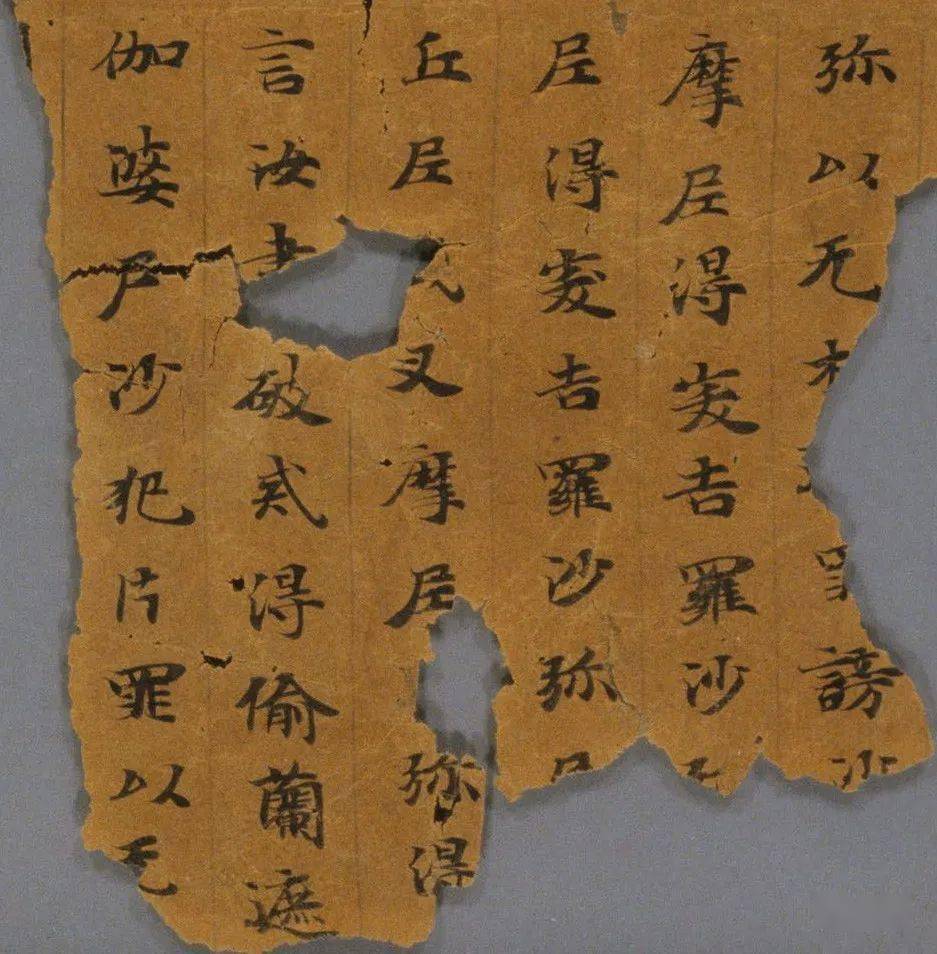 弥以无根罪謗沙
摩尼得突吉羅沙
尼得突吉羅沙弥尼
丘尼式叉摩尼弥得
言汝破戒得偷蘭遮
伽婆尸沙犯片罪以无